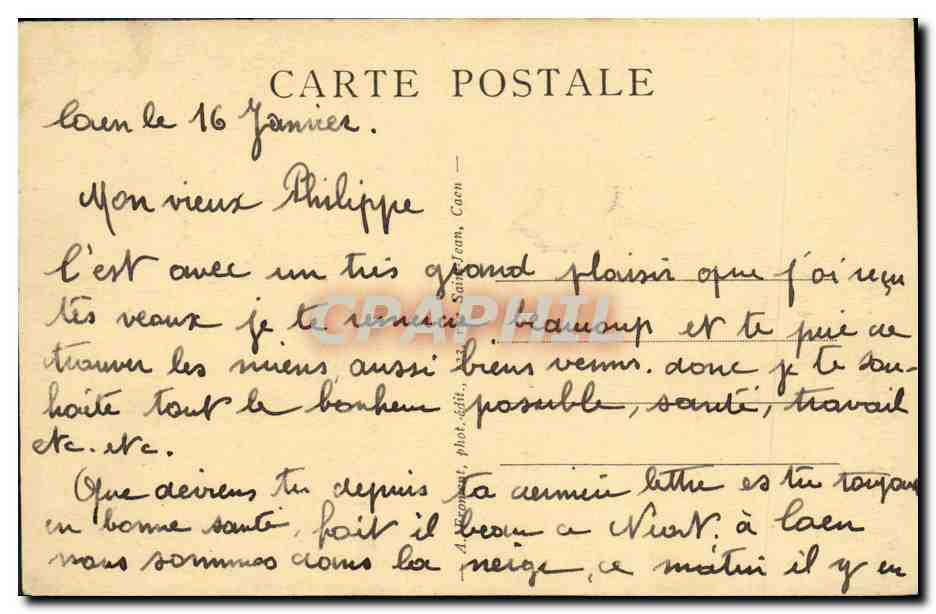 CARTE POSTALE
Caen le 16 Janvier.
Mon vieux Philippe
C'est avec un très grand plaisir que j'ai reçu
tes veaux je te remercie beaucoup et te prie de
trouver les miens aussi biens venus. donc je te sou-
haite tout le bonheur possible, santé, travail
etc. etc.
Que deviens tu depuis ta dernière lettre es tu toujours
en bonne santé, fait il beau a Niort. à Caen
nous sommes dans la neige, ce matin il y en
phot. édit., Saint-Jean, Caen —
CPAPHIL